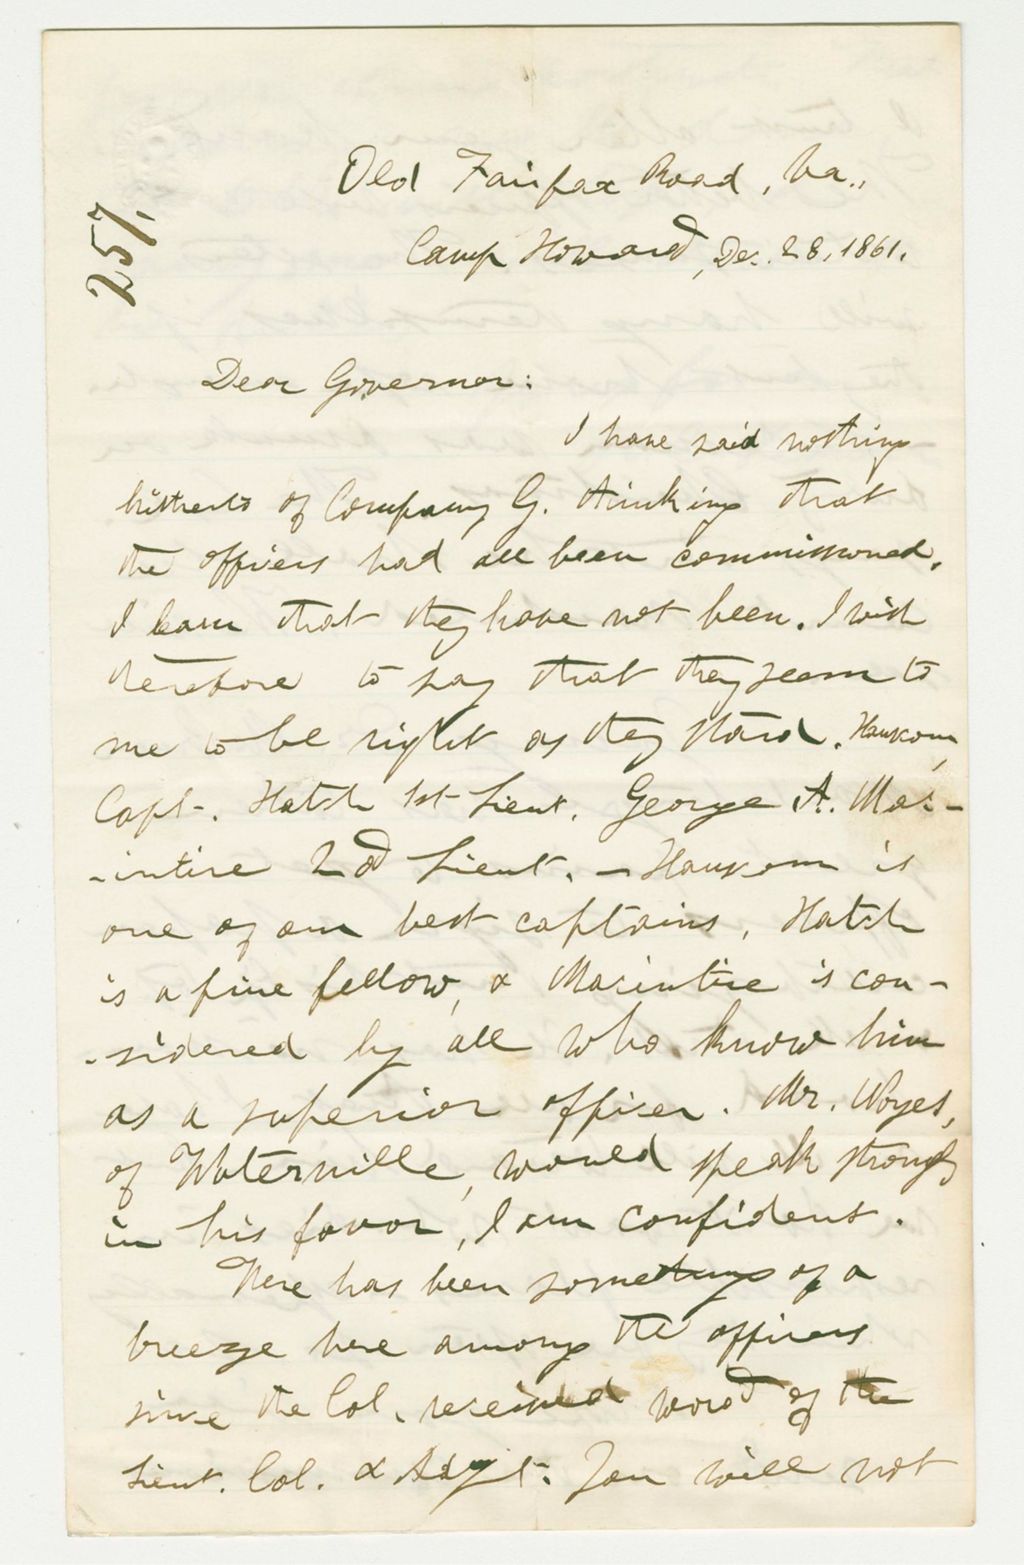 257.
Old Fairfax Road, Va.,
Camp Howard, Dec. 28, 1861.
Dear Governor:
I have said nothing
hitherto of Company G. thinking that
the officers had all been commissioned.
I learn that they have not been. I wish
therefore to say that they seem to
me to be right as they stand.
Capt. Hatch 1st Lieut. George A. Mac-
-intire 2nd Lieut. — is
one of our best captains, Hatch
is a fine fellow, & Macintire is con-
-sidered by all who know him
as a superior officer. Mr. Noyes,
of Waterville, would speak strongly
in his favor, I am confident.
There has been something of a
breeze here among the officers
since the Col. received word of the
Lieut. Col. & Adjt. You will not